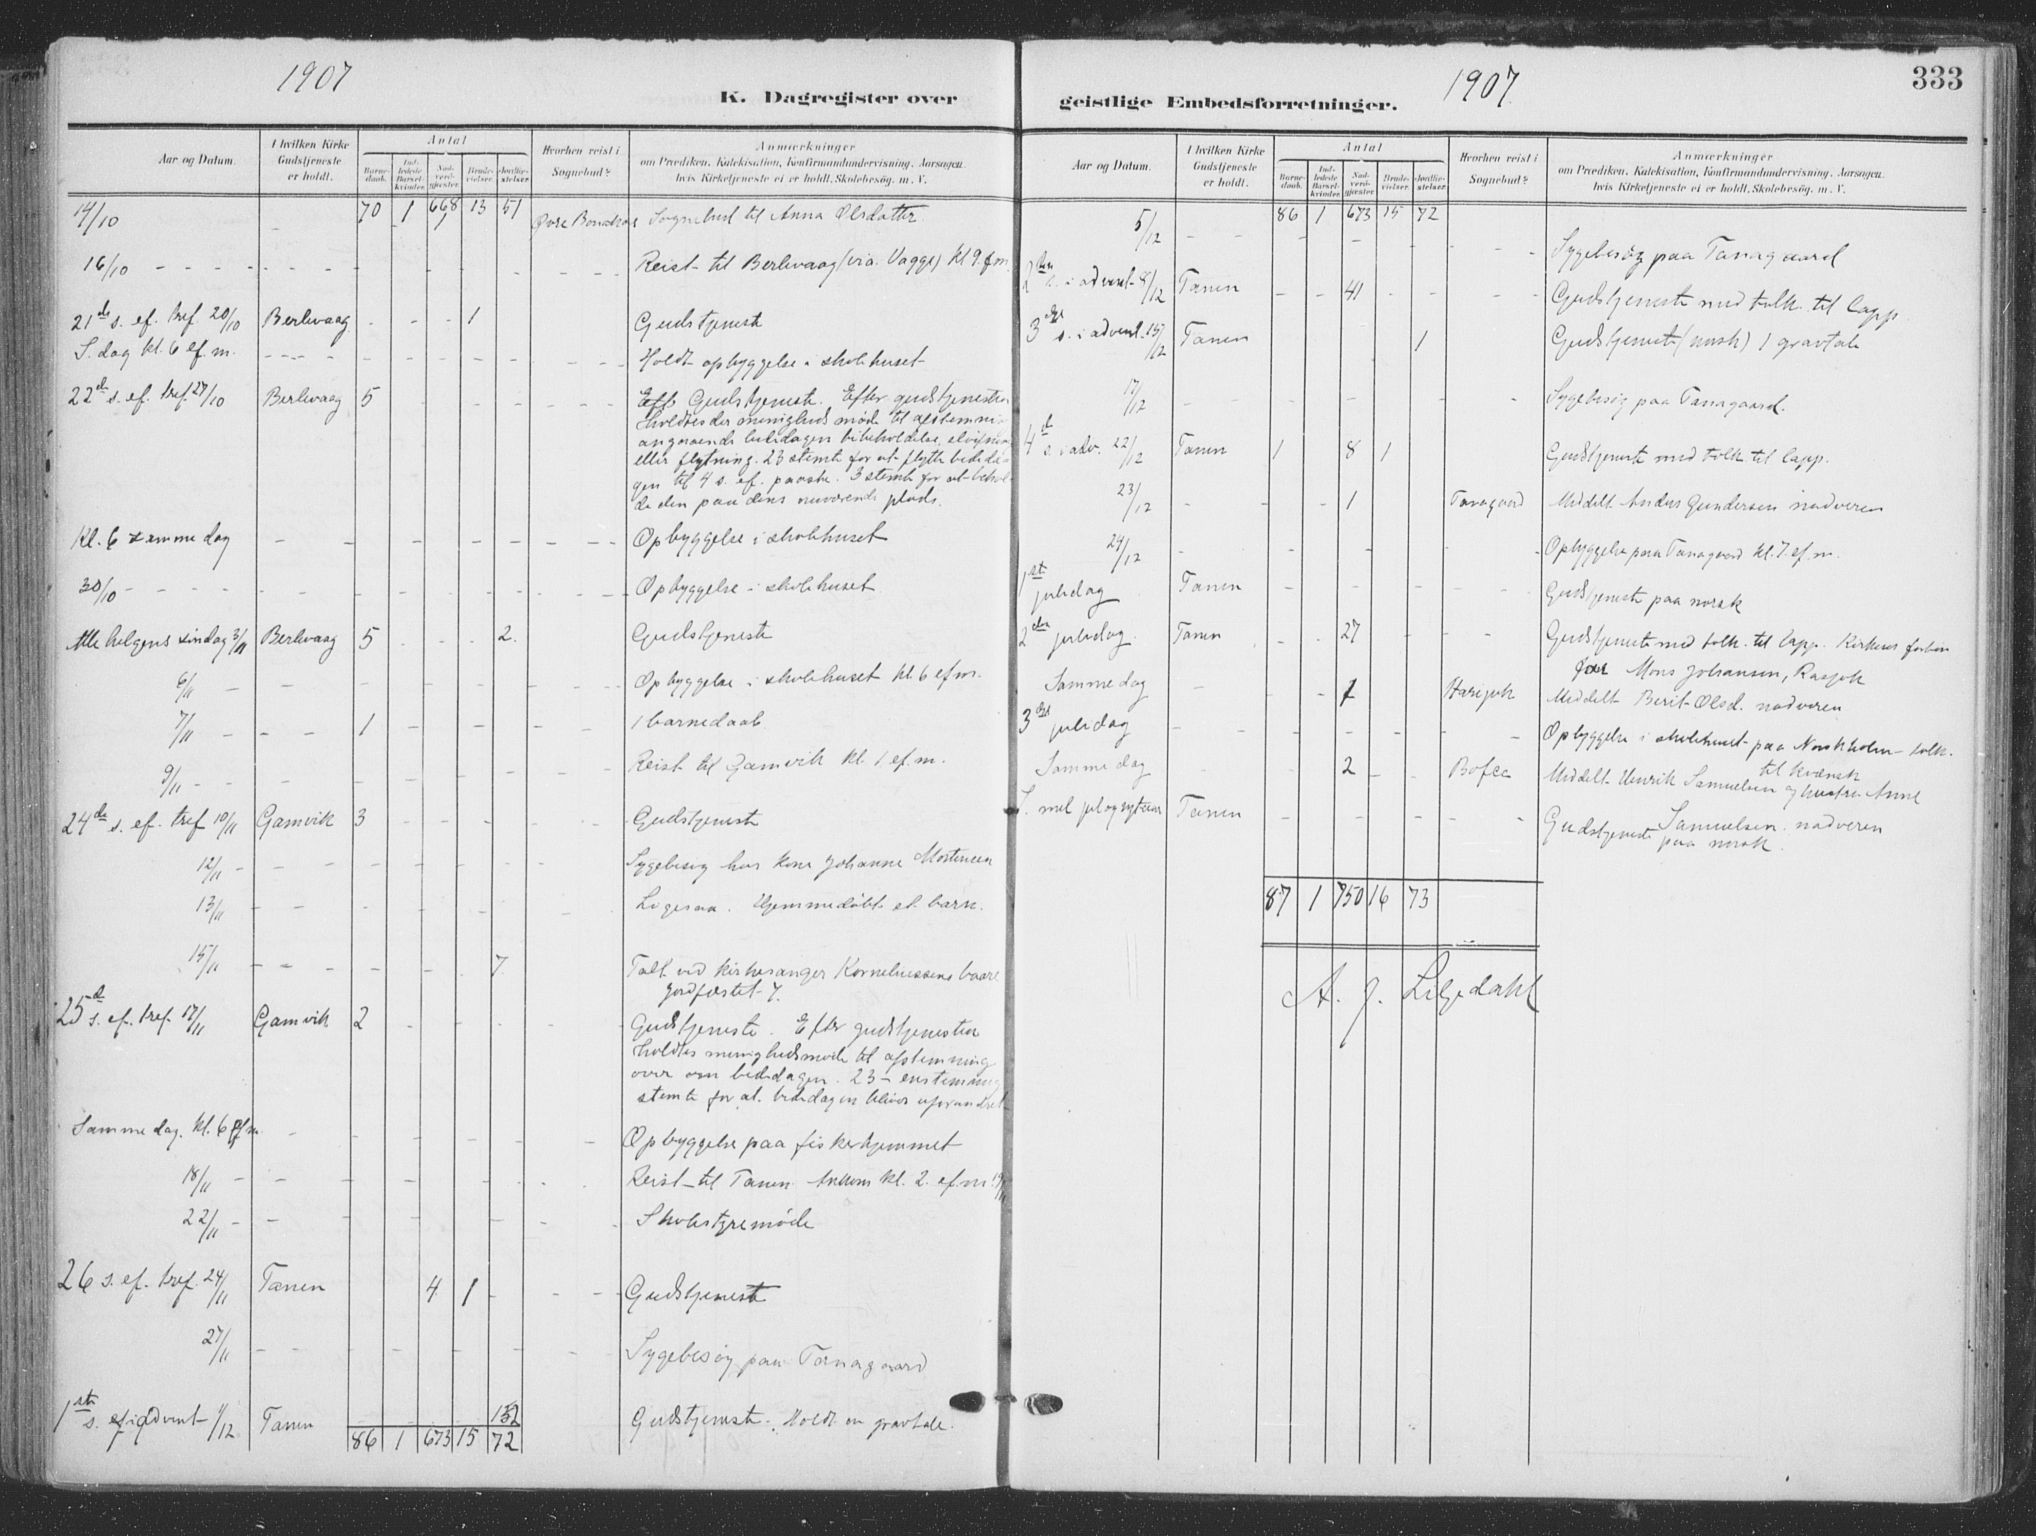 1907
K. Dagregister over
Aar og Datum.
I hvilken Kirke Gudstjeneste er holdt.
Antal
Barnedaab.
Indledede Barselkvinder.
Nadverdgjester.
Brudevielser.
Jordfæstelser.
Hvorhen reist i Sognebud?
Anmærkninger
om Prædiken, Katekisation, Konfirmandundervisning, Aarsagen,
hvis Kirketjeneste ei er holdt, Skolebesøg, m. V.
14/10 - 70 1 668 13 51 Øvre Sognebud til Anna Olsdatter
1
16/10 - - - - Reist til Berlevaag (via Vagge) kl 9 f.m.
21de s. ef. tref. 20/10 Berlevaag - - - 1 Gudstjeneste
S. dag kl. 6 ef. m. - - - - Holdt opbyggelse i skolehuset
22de s. ef. tref. 27/10 Berlevaag 5 - - - Gudstjeneste. Efter gudstjenesten
holdtes der menigheds møde til afstemni-
angaaende bededagen bibeholdelse,
eller flytning. 23 stemte for at flytte bededa-
gen til 4 s. ef. paaske. 3 stemte for at behol-
de den paa dens nuværende plads.
Kl. 6 samme dag - - - Opbyggelse i skolehuset
30/10 - - - - Opbyggelse i skolehuset
Alle helgens søndag 3/11 Berlevaag 5 - - - 2. Gudstjeneste
6/11 - - - Opbyggelse i skolehuset kl 6 ef.m.
7/11 - - - 1 - - 1 barnedaab
9/11 - - - Reist til Gamvik kl. 1 ef. m.
24de s. ef. tref 10/11 Gamvik 3 - - - Gudstjeneste
12/11 - - - Sygebesøg hos kone Johanne Mortensen
13/11 - - - Ligesaa. Hjemmedøbt et barn.
15/11 - - - 7 Talt ved kirkesanger Korneliussens baare
Jordfæstet 7.
25de s. ef. tref. 17/11 Gamvik 2 - - - Gudstjeneste. Efter gudstjenesten
holdtes menighedsmøde til afstemning
over om bededagen. 23 - enstemmig
stemte for at bededagen bliver uforandret
Samme dag. kl. 6 ef m. - - - Opbyggelse paa fiskerhjemmet
18/11 - - - Reist til Tanen Ankom kl. 2. ef. m. 19/11
22/11 - - - Skolestyremøde
26 s. ef. tref. 24/11 Tanen 4 1 - - - Gudstjeneste
27/11 - - - Sygebesøg paa Tanagaard
1ste s. i advent 1/12 Tanen - - - Gudstjeneste. Holdt en gravtale.
86 1 673 15 72
1907
333
geistlige Embedsforretninger.
Aar og Datum.
I hvilken Kirke Gudstjeneste er holdt.
Antal
Barnedaab.
Indledede Barselkvinder.
Nadverdgjester.
Brudevielser.
Jordfæstelser.
Hvorhen reist i Sognebud?
Anmærkninger
om Prædiken, Katekisation, Konfirmandundervisning, Aarsagen,
hvis Kirketjeneste ei er holdt, Skolebesøg, m. V.
86 1 673 15 72
5/12 - - - Sygebesøg paa Tanagaard
2den s. i advent 8/12 Tanen - - 41 - - Gudstjeneste med tolk til lapp.
3die s. i advent. 15/12 Tanen 1 Gudstjeneste (norsk) 1 gravtale
17/12 - - - Sygebesøg paa Tanagaard.
4de s. i adv. 22/12 Tanen 1 8 1 Gudstjeneste med tolk til lapp.
23/12 - - - 1 Tanagaard Meddelt Anders Gundersen nadveren
24/12 - - - Opbyggelse paa Tanagaard kl. 7. ef. m.
1ste juledag Tanen - - - Gudstjeneste paa norsk
2den juledag. Tanen - - 27 - - Gudstjeneste med tolk til lapp. Kirkens forbøn
for Mons Johansen, Rasjok
Samme dag - - 1 Harrejok Meddelt Berit Olsd. nadveren
3die juledag - - - Opbyggelse i skolehuset paa Norskholm - tolk.
til kvænsk
Samme dag - - 2 - Meddelt Henrik Samuelsen og hustru Anne
Samuelsen nadveren
S. mel jul og nytaar Tanen - - - Gudstjeneste
paa norsk.
87 1 750 16 73
A. J. Liljedahl